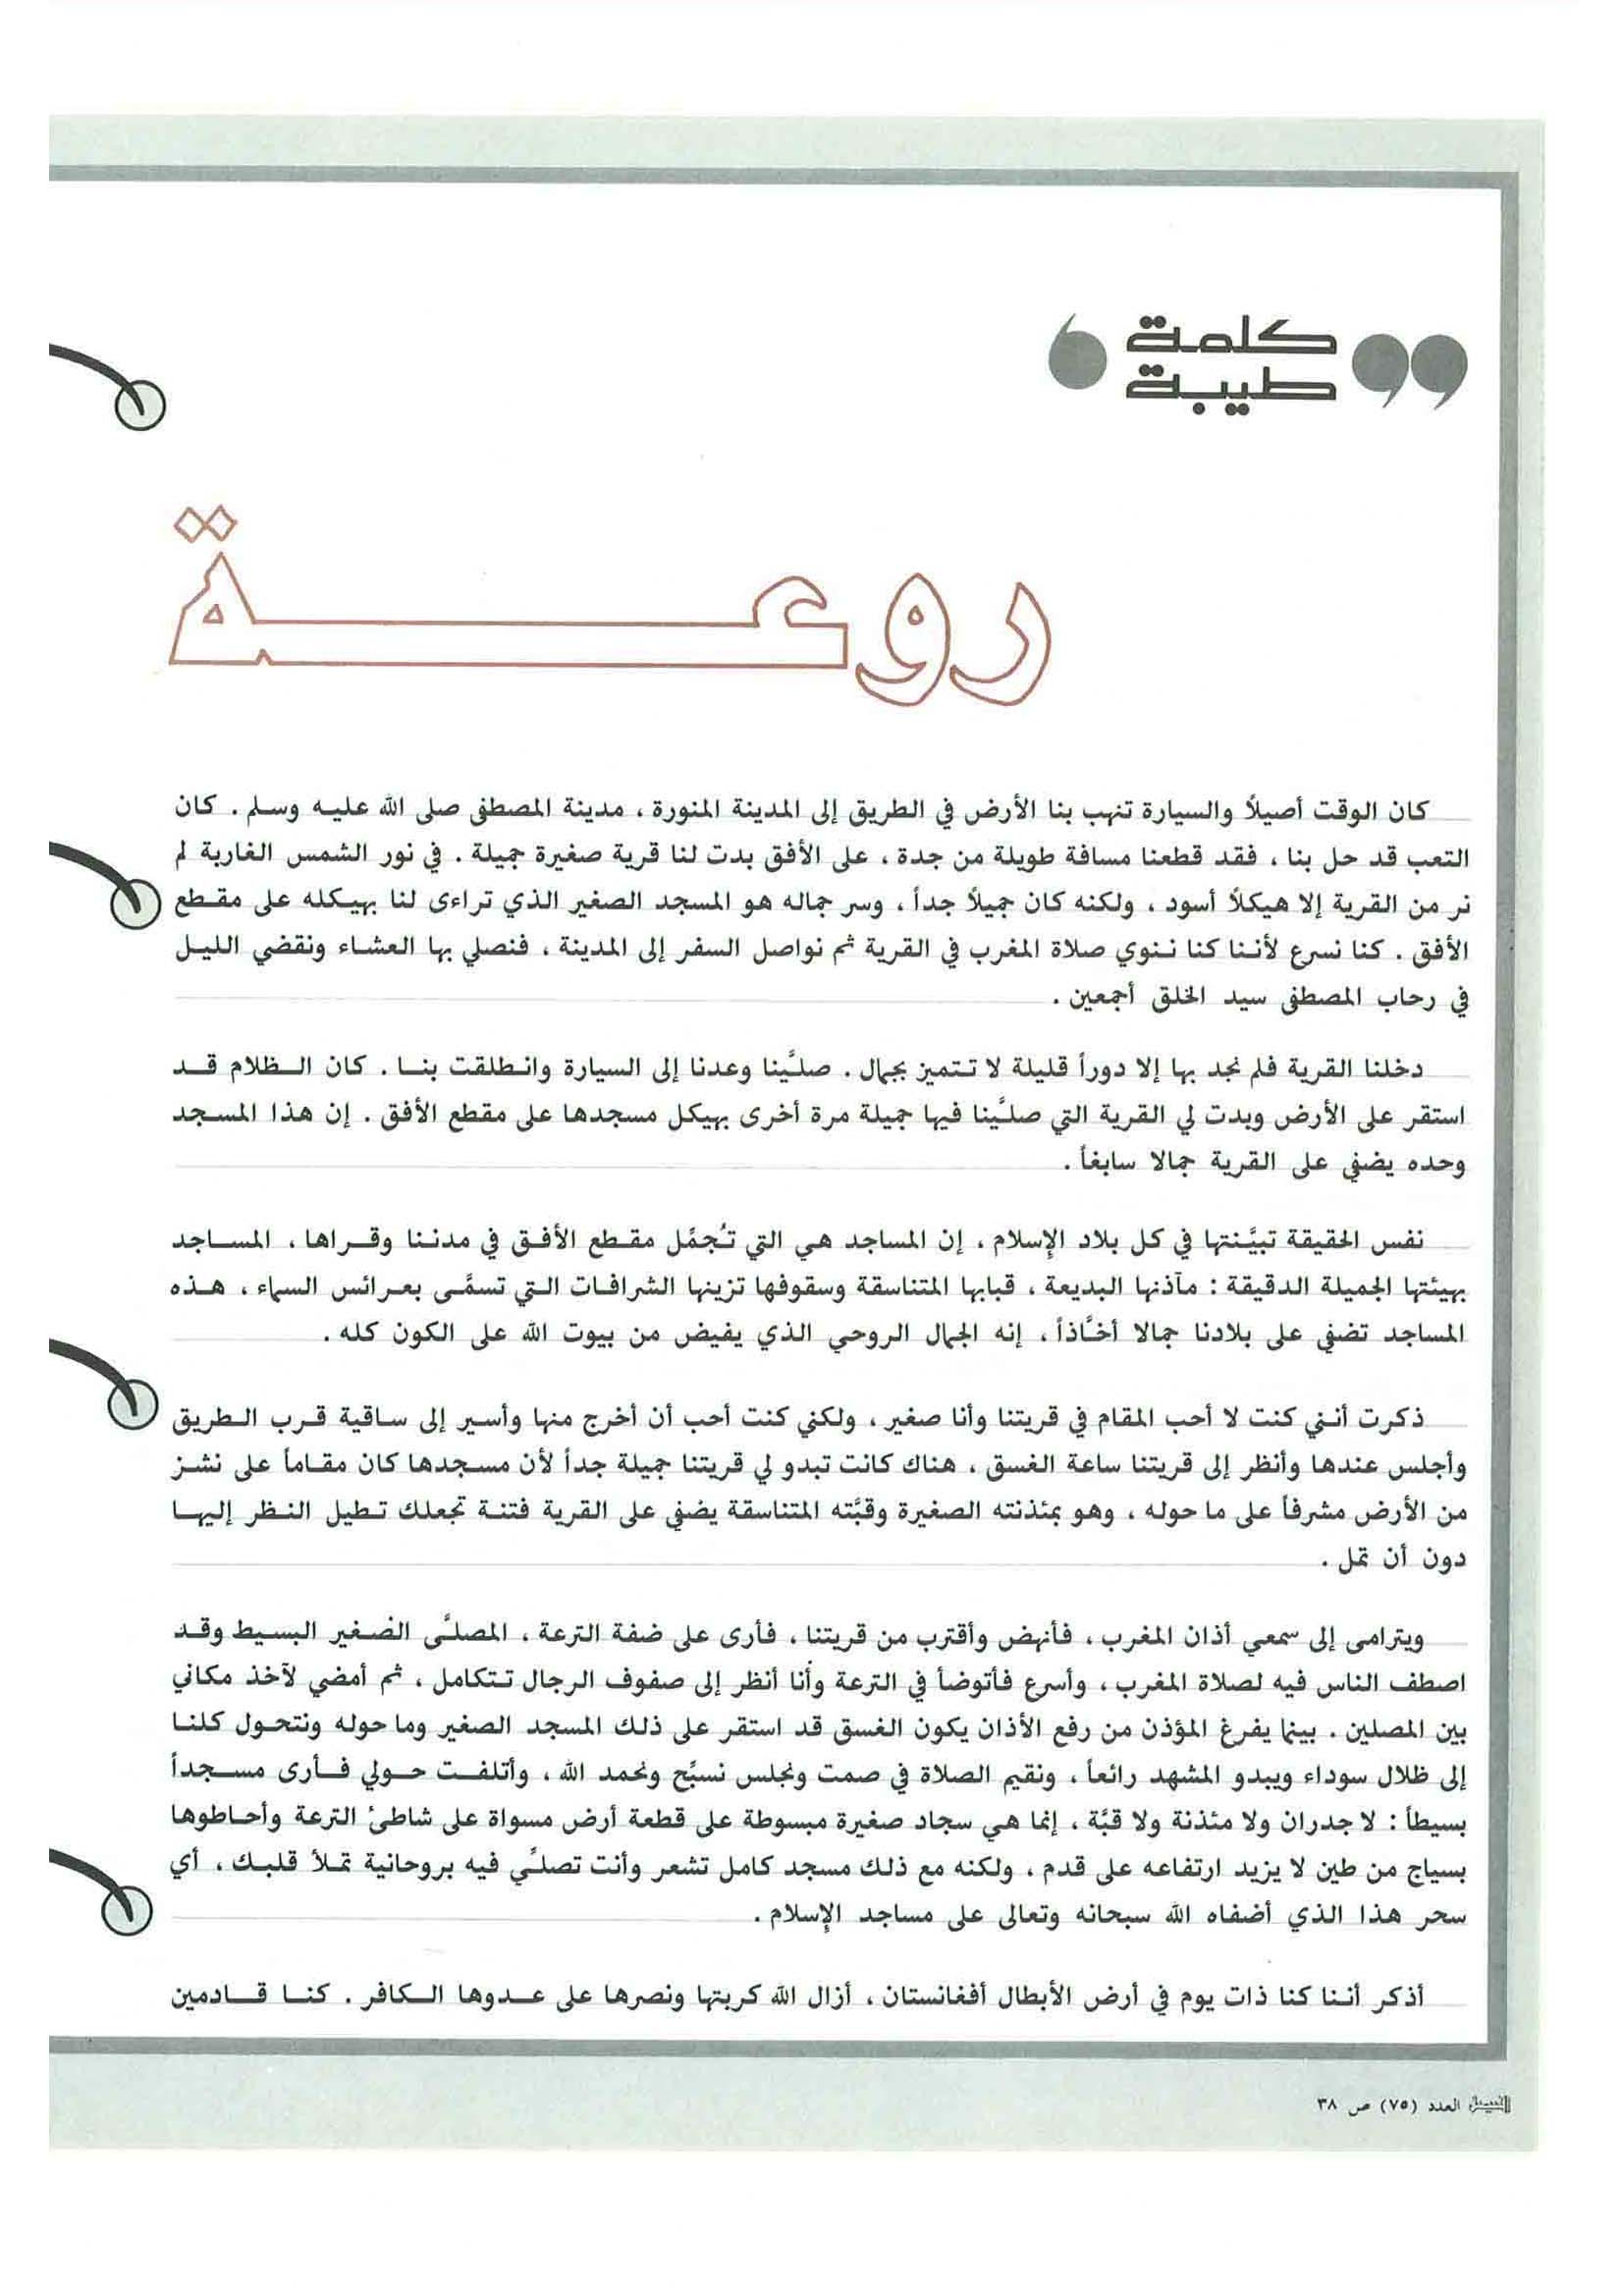 كلمة
طيبة
روعة
كان الوقت أصيلاً والسيارة تنهب بنا الأرض في الطريق إلى المدينة المنورة ، مدينة المصطفى صلى الله عليه وسلم . كان
التعب قد حل بنا ، فقد قطعنا مسافة طويلة من جدة ، على الأفق بدت لنا قرية صغيرة جميلة . في نور الشمس الغاربة لم
نر من القرية إلا هيكلاً أسود ، ولكنه كان جميلاً جداً ، وسر جماله هو المسجد الصغير الذي تراءى لنا بهيكله على مقطع
الأفق . كنا نسرع لأننا كنا ننوي صلاة المغرب في القرية ثم نواصل السفر إلى المدينة ، فنصلي بها العشاء ونقضي الليل
في رحاب المصطفى سيد الخلق أجمعين .
دخلنا القرية فلم نجد بها إلا دوراً قليلة لا تتميز بجمال . صلَّينا وعدنا إلى السيارة وانطلقت بنا . كان الظلام قد
استقر على الأرض وبدت لي القرية التي صلَّينا فيها جميلة مرة أخرى بهيكل مسجدها على مقطع الأفق . إن هذا المسجد
وحده يضفي على القرية جمالا سابغاً .
نفس الحقيقة تبيَّنتها في كل بلاد الإسلام ، إن المساجد هي التي تُجمَّل مقطع الأفق في مدننا وقراها ، المساجد
بهيئتها الجميلة الدقيقة : مآذنها البديعة ، قبابها المتناسقة وسقوفها تزينها الشرافات التي تسمَّى بعرائس السماء ، هذه
المساجد تضفي على بلادنا جمالا أخَّاذاً ، إنه الجمال الروحي الذي يفيض من بيوت الله على الكون كله .
ذكرت أنني كنت لا أحب المقام في قريتنا وأنا صغير ، ولكني كنت أحب أن أخرج منها وأسير إلى ساقية قرب الطريق
وأجلس عندها وأنظر إلى قريتنا ساعة الغسق ، هناك كانت تبدو لي قريتنا جميلة جداً لأن مسجدها كان مقاماً على نشز
من الأرض مشرفاً على ما حوله ، وهو بمئذنته الصغيرة وقبَّته المتناسقة يضفي على القرية فتنة تجعلك تطيل النظر إليها
دون أن تمل .
ويترامى إلى سمعي أذان المغرب ، فأنهض وأقترب من قريتنا ، فأرى على ضفة الترعة ، المصلَّى الصغير البسيط وقد
اصطف الناس فيه لصلاة المغرب ، وأسرع فأتوضأ في الترعة وأنا أنظر إلى صفوف الرجال تتكامل ، ثم أمضي لآخذ مكاني
بين المصلين . بينما يفرغ المؤذن من رفع الأذان يكون الغسق قد استقر على ذلك المسجد الصغير وما حوله ونتحول كلنا
إلى ظلال سوداء ويبدو المشهد رائعاً ، ونقيم الصلاة في صمت ونجلس نسبَّح ونحمد الله ، وأتلفت حولي فأرى مسجداً
بسيطاً : لا جدران ولا مئذنة ولا قبَّة ، إنما هي سجاد صغيرة مبسوطة على قطعة أرض مسواة على شاطئ الترعة وأحاطوها
بسياج من طين لا يزيد ارتفاعه على قدم ، ولكنه مع ذلك مسجد كامل تشعر وأنت تصلَّي فيه بروحانية تملأ قلبك ، أي
سحر هذا الذي أضفاه الله سبحانه وتعالى على مساجد الإسلام .
أذكر أننا كنا ذات يوم في أرض الأبطال أفغانستان ، أزال الله كربتها ونصرها على عدوها الكافر . كنا قادمين
الفيصل العدد (٧٥) ص ٣٨